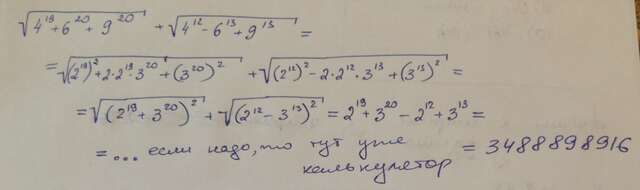 √(4¹⁹ + 6²⁰ + 9²⁰) + √(4¹² − 6¹³ + 9¹³) =
= √((2¹⁹)² + 2·2¹⁹·3²⁰ + (3²⁰)²) + √((2¹²)² − 2·2¹²·3¹³ + (3¹³)²) =
= √((2¹⁹ + 3²⁰)²) + √((2¹² − 3¹³)²) = 2¹⁹ + 3²⁰ − 2¹² + 3¹³ =
= ... если надо, то тут уже калькулятор = 3488898916